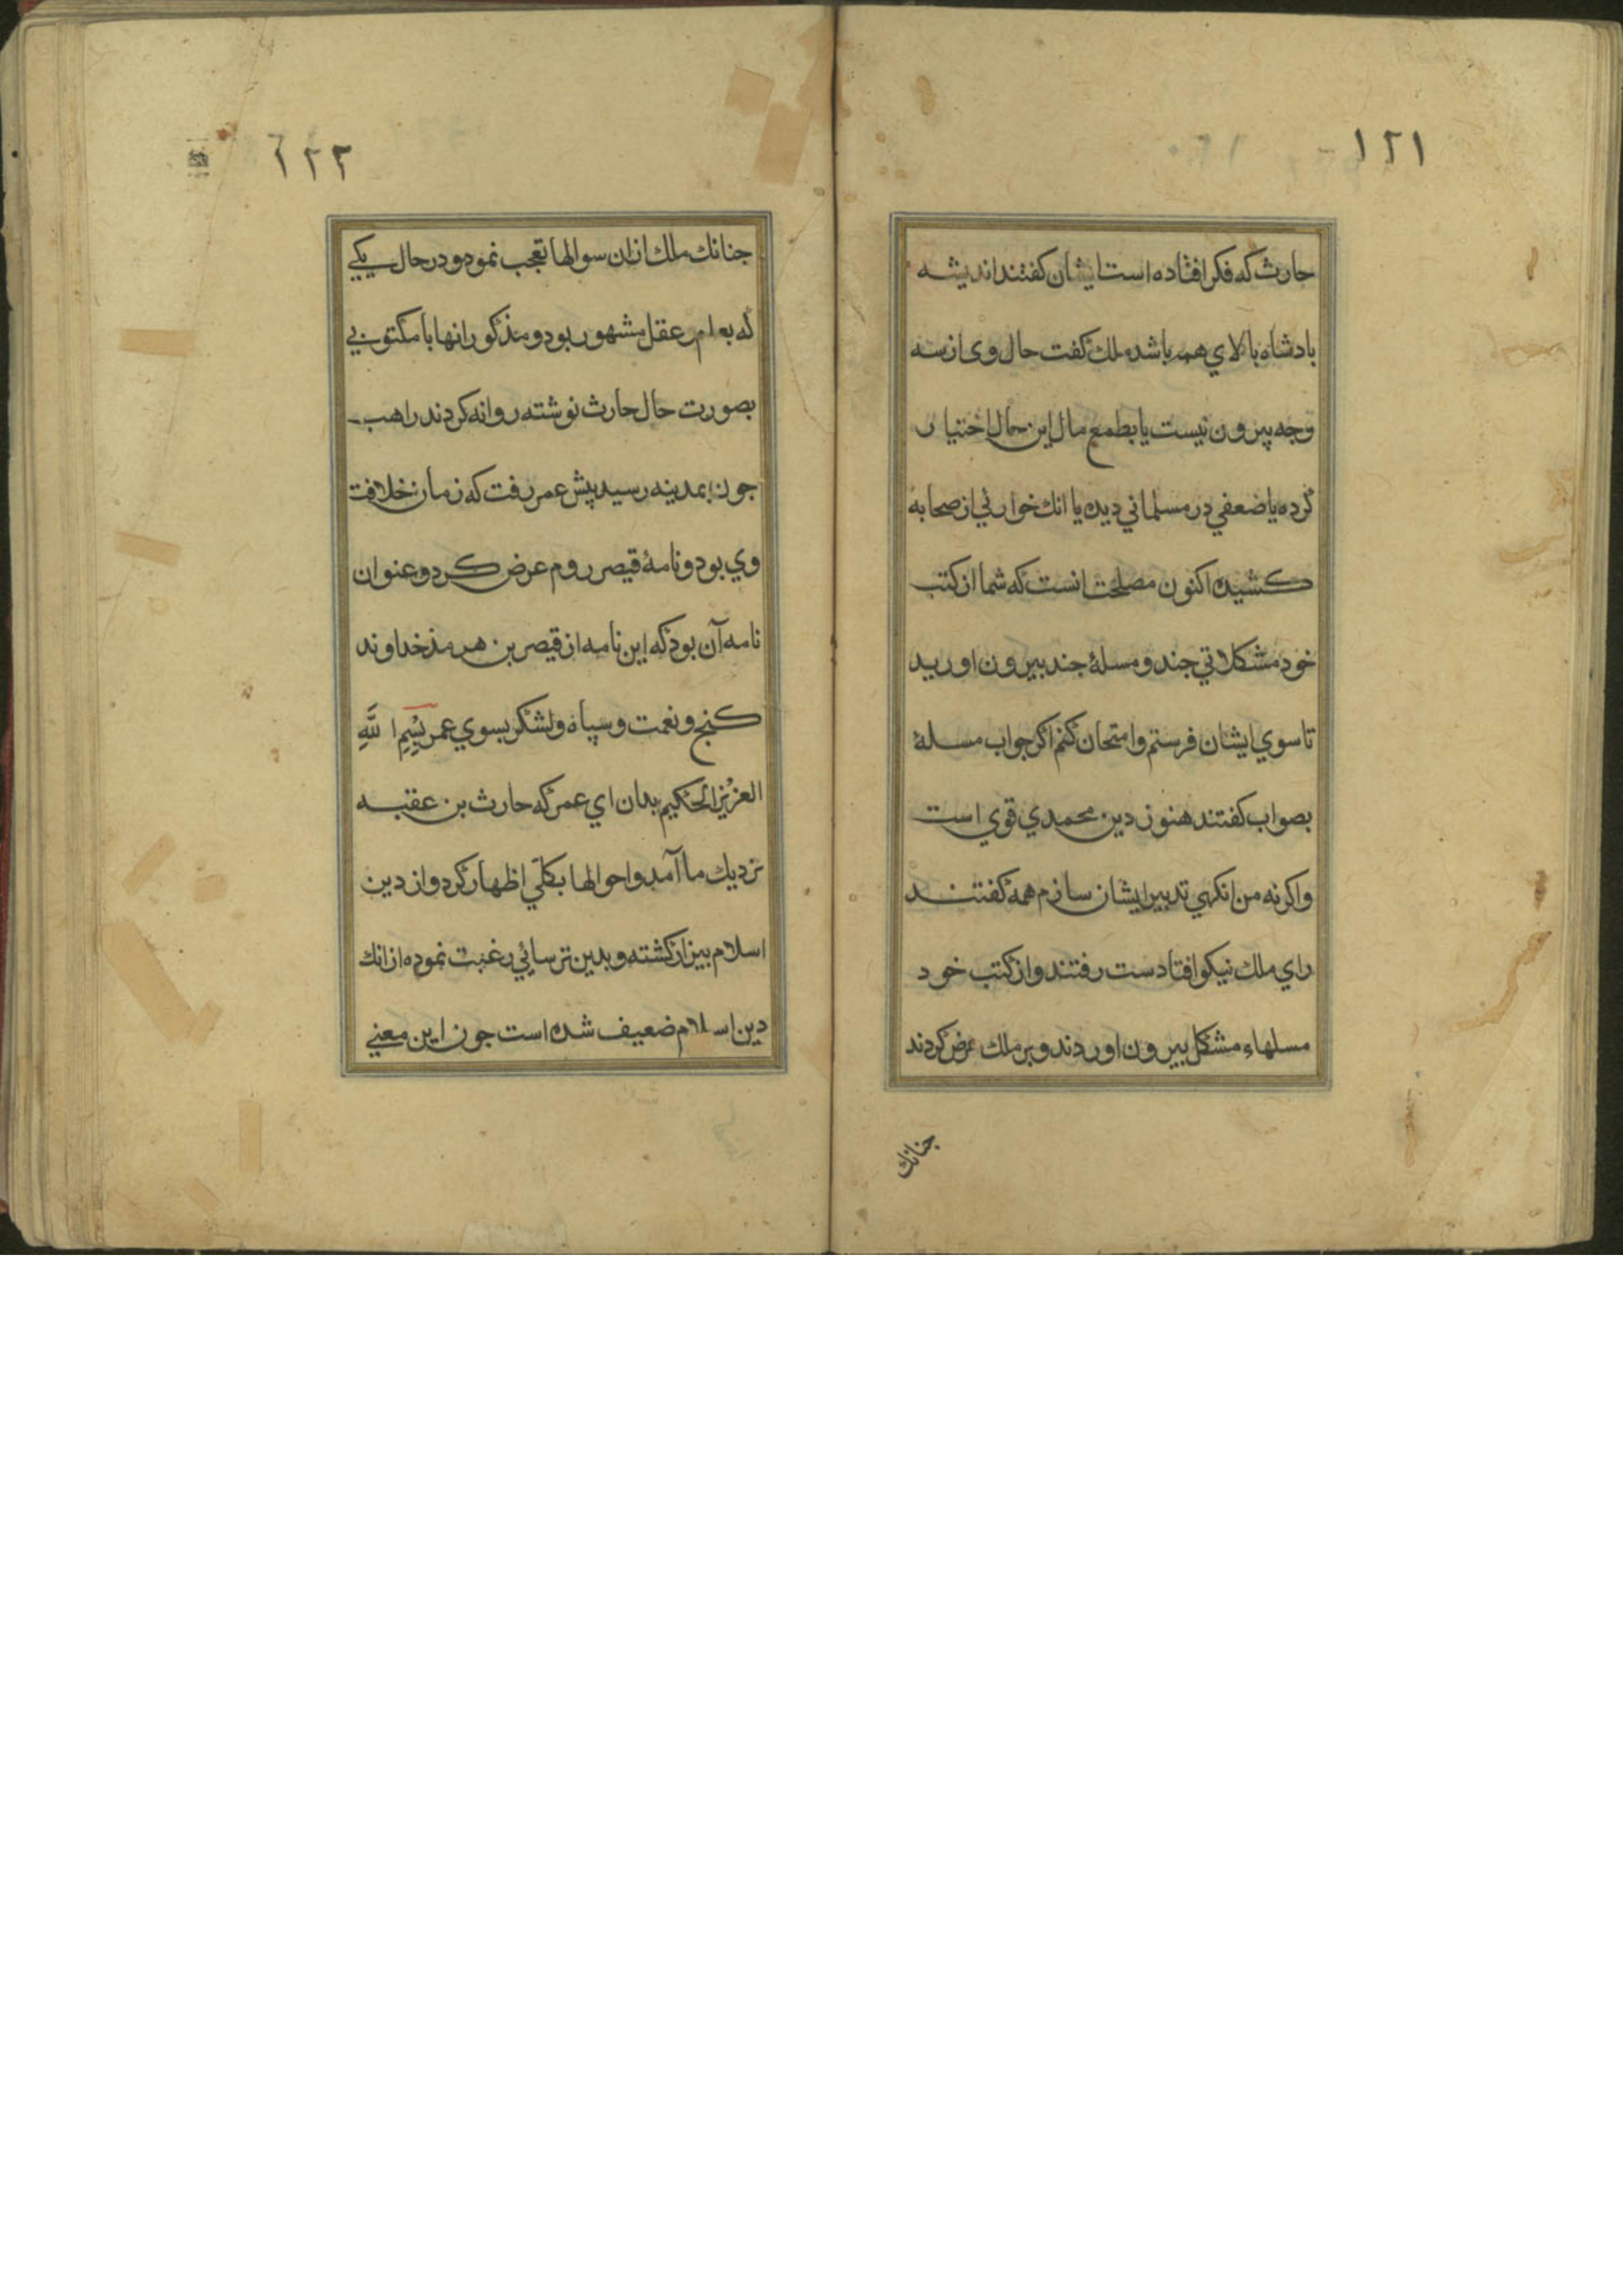 ١٢١
حارث که فکر افتاده است ایشان کفتند اندیشه
بادشاه بالای همه باشد ملک کفت حال وی از سه
وجه بیرون نیست یا بطمع مال این حال اختیار
کرده یا ضعفی در مسلمانی دیده یا انک خواریی از صحابه
کشیده اکنون مصلحت انست که شما از کتب
خود مشکلاتی جند و مسلۀ جند بیرون اورید
تا سوی ایشان فرستم و امتحان کنم اکر جواب مسلۀ
بصواب کفتند هنوز دین محمدی قوی است
واکرنه من انکهی تدبیر ایشان سازم همه کفتند
رای ملک نیکو افتادست رفتند و از کتب خود
مسلهاء مشکل بیرون اوردند و بر ملک عرض کردند
جنانک
١٢٢
جنانک ملک ازان سوالها تعجب نمود و در حال یکی
که بعلم و عقل مشهور بود و مذکور انها با مکتوبی
بصورت حال حارث نوشته روانه کردند راهب
جون بمدینه رسید پیش عمر رفت که زمان خلافت
وی بود و نامۀ قیصر روم عرض کرد و عنوان
نامه آن بود که این نامه از قیصر بن هرمذ خداوند
کنج و نعمت و سپاه و لشکر بسوی عمر بِسْمِ اللَّهِ
العزیز الحکیم بدان ای عمر که حارث بن عقبه
نزدیک ما آمد و احوالها بکلّی اظهار کرد و از دین
اسلام بیزار کشته و بدین ترسائی رغبت نموده از انک
دین اسلام ضعیف شده است جون این معنی